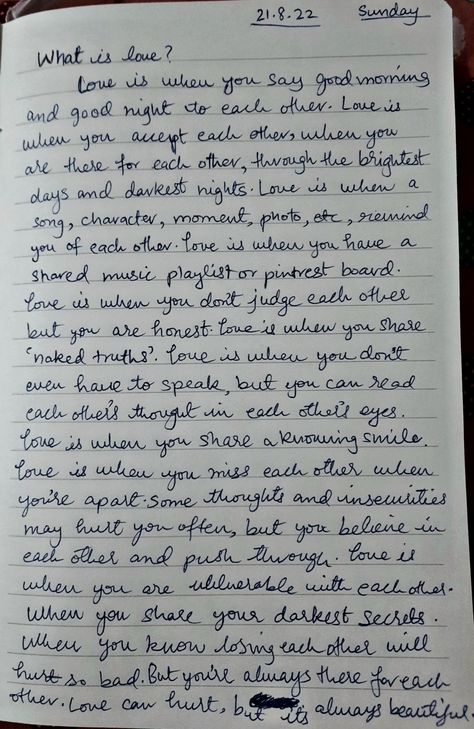 21.8.22 Sunday
What is love?
Love is when you say good morning
and good night to each other. Love is
when you accept each other, when you
are there for each other, through the brightest
days and darkest nights. Love is when a
song, character, moment, photo, etc, remind
you of each other. Love is when you have a
shared music playlist or pintrest board.
Love is when you don't judge each other
but you are honest. Love is when you share
'naked truths'. Love is when you don't
even have to speak, but you can read
each other's thought in each other's eyes.
Love is when you share a knowing smile.
Love is when you miss each other when
you're apart. Some thoughts and insecurities
may hurt you often, but you believe in
each other and push through. Love is
when you are vulnerable with each other.
When you share your darkest secrets.
When you know losing each other will
hurt so bad. But you're always there for each
other. Love can hurt, but its always beautiful.